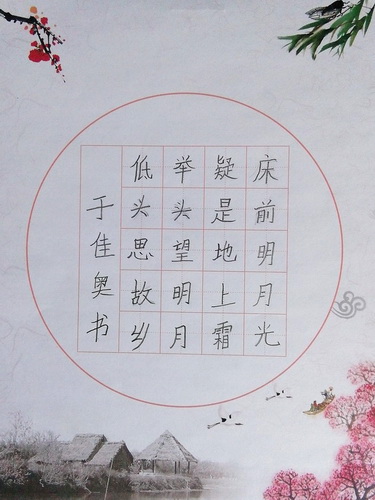 床前明月光
疑是地上霜
举头望明月
低头思故乡
于佳奥书